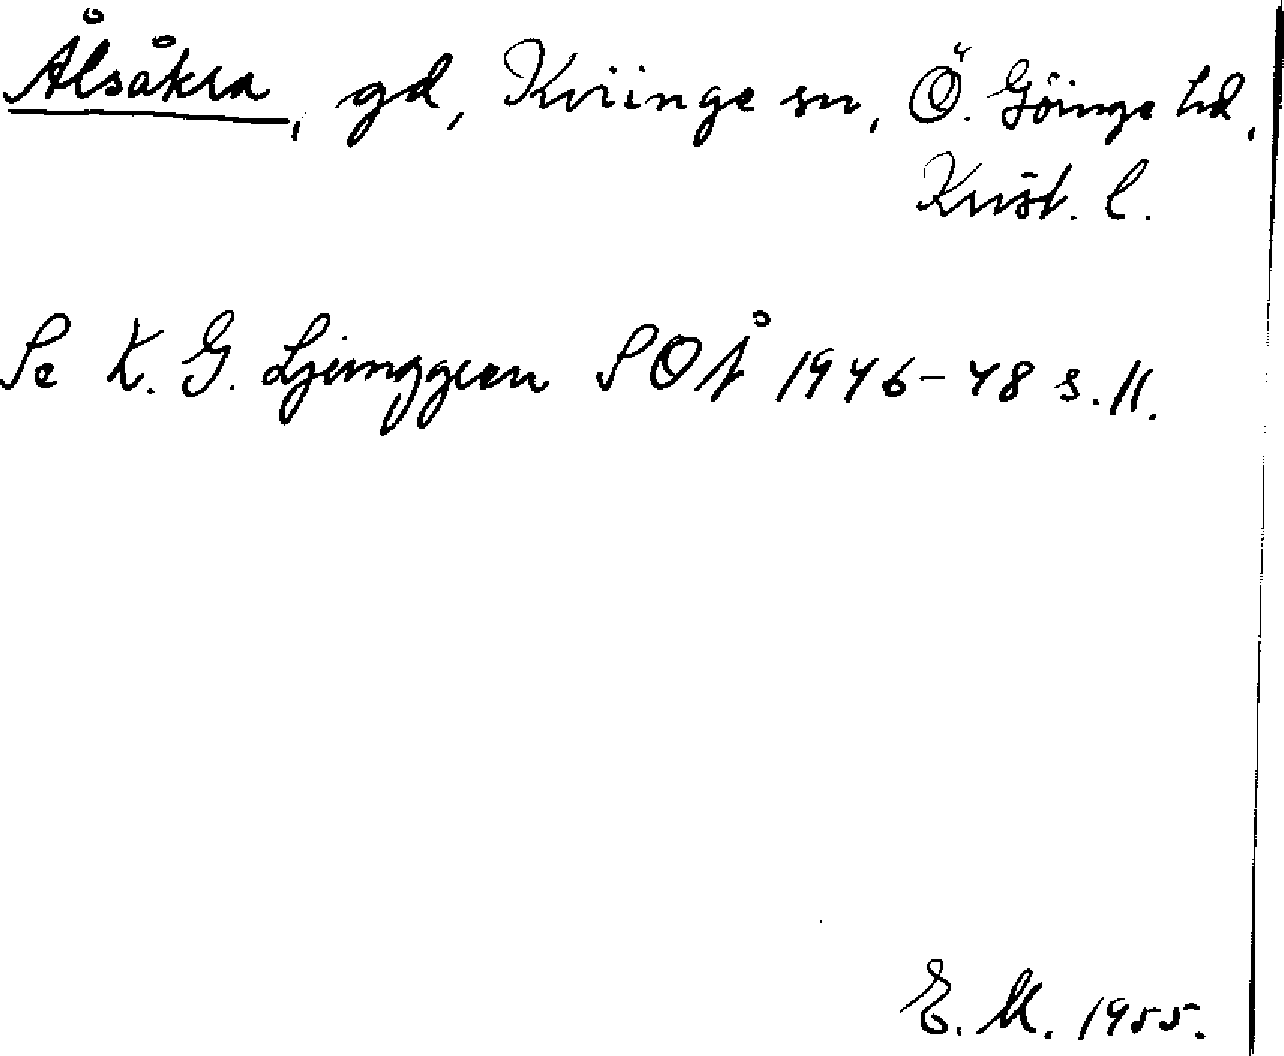 Ålsåkra, gd, Kviinge sn, Ö. Göinge hd,
Krist. l.
Se K. G. Ljunggren SOÅ 1946-48 s. 11.
E. M. 1955.